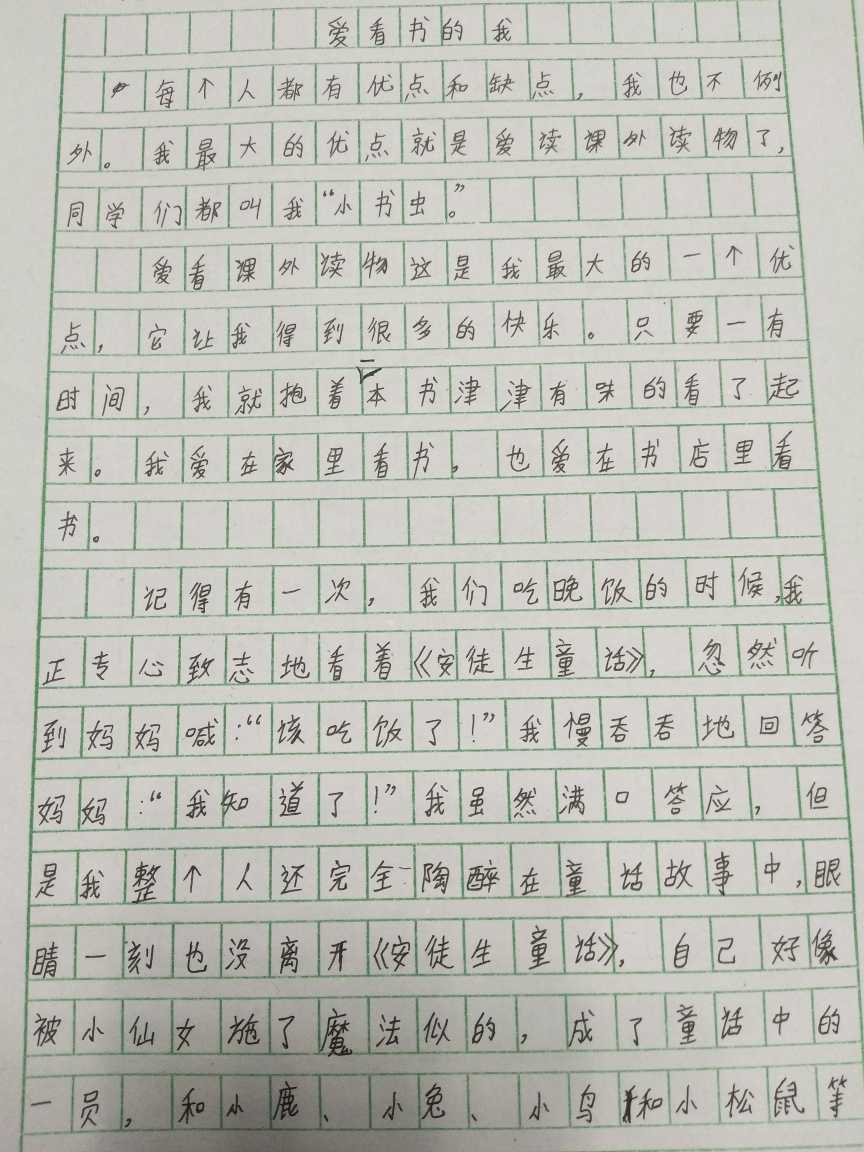 爱看书的我
每个人都有优点和缺点，我也不例
外。我最大的优点就是爱读课外读物了，
同学们都叫我“小书虫”。
爱看课外读物这是我最大的一个优
点，它让我得到很多的快乐。只要一有
时间，我就抱着一本书津津有味的看了起
来。我爱在家里看书，也爱在书店里看
书。
记得有一次，我们吃晚饭的时候，我
正专心致志地看着《安徒生童话》，忽然听
到妈妈喊：“该吃饭了！”我慢吞吞地回答
妈妈：“我知道了！”我虽然满口答应，但
是我整个人还完全陶醉在童话故事中，眼
睛一刻也没离开《安徒生童话》，自己好像
被小仙女施了魔法似的，成了童话中的
一员，和小鹿、小兔、小鸟和小松鼠等